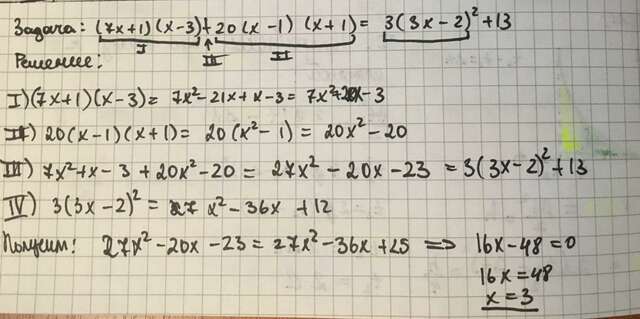 Задача: (7x+1)(x-3)+20(x-1)(x+1)= 3(3x-2)²+13
I III II
Решение:
I)(7x+1)(x-3)= 7x²-21x+x-3= 7x²-20x-3
II) 20(x-1)(x+1)= 20(x²-1) = 20x²-20
III) 7x²+x-3+20x²-20 = 27x²-20x-23 =3(3x-2)²+13
IV) 3(3x-2)²= 27x²-36x+12
Получим: 27x²-20x-23=27x²-36x+25 => 16x-48=0
16x=48
x=3